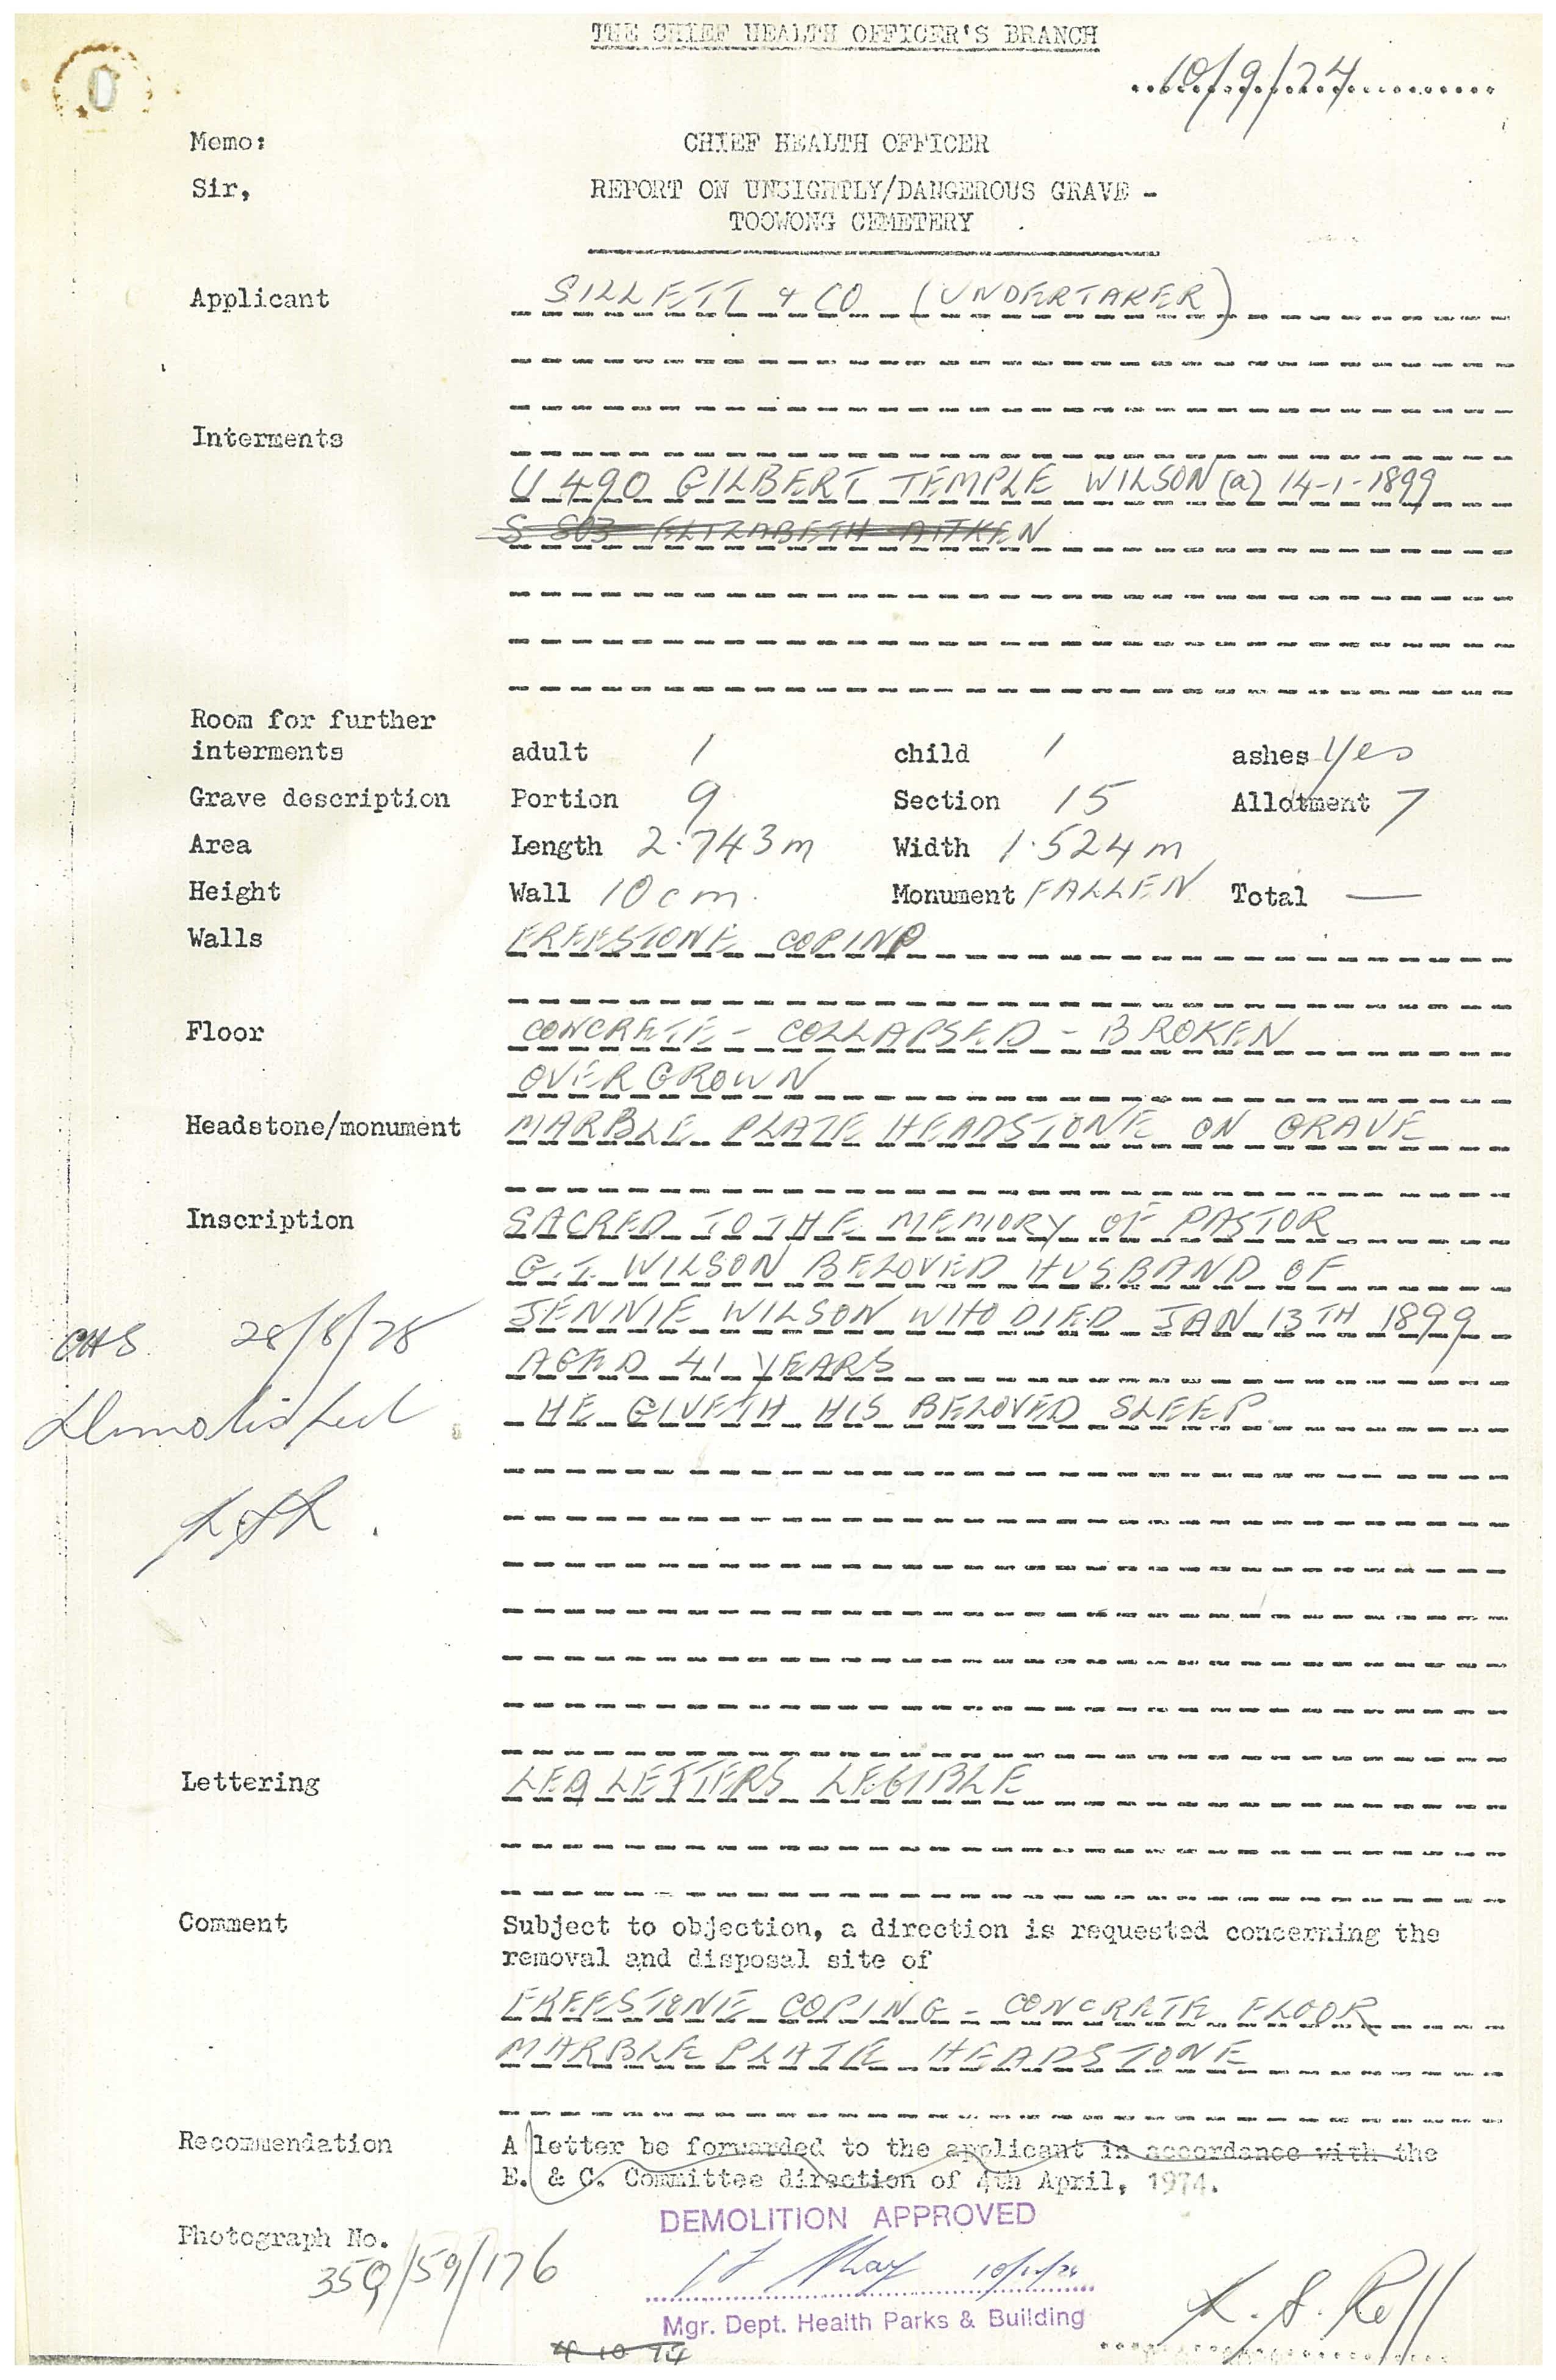 THE CHIEF HEALTH OFFICER'S BRANCH
10/9/74
Memo: CHIEF HEALTH OFFICER
Sir, REPORT ON UNSIGHTLY/DANGEROUS GRAVE -
TOOWONG CEMETERY
Applicant SILLETT & CO (UNDERTAKER)
Interments
U 490 GILBERT TEMPLE WILSON (a) 14-1-1899
S 803 ELIZABETH AITKEN
Room for further
interments adult 1 child 1 ashes Yes
Grave description Portion 9 Section 15 Allotment 7
Area Length 2.743m Width 1.524m
Height Wall 10cm. Monument FALLEN Total —
Walls FREESTONE COPING
Floor CONCRETE - COLLAPSED - BROKEN
OVERGROWN
Headstone/monument MARBLE PLATE HEADSTONE ON GRAVE
Inscription SACRED TO THE MEMORY OF PASTOR
G.T. WILSON BELOVED HUSBAND OF
JENNIE WILSON WHO DIED JAN 13TH 1899
AGED 41 YEARS
HE GIVETH HIS BELOVED SLEEP
28/8/78
Demolished
Lettering LEA LETTERS LEGIBLE
Comment Subject to objection, a direction is requested concerning the
removal and disposal site of
FREESTONE COPING - CONCRETE FLOOR
MARBLE PLATE HEADSTONE
Recommendation A letter be forwarded to the applicant in accordance with the
E. & C. Committee direction of 4th April, 1974.
DEMOLITION APPROVED
Photograph No.
35Q/59/176
Mgr. Dept. Health Parks & Building
4 10 74